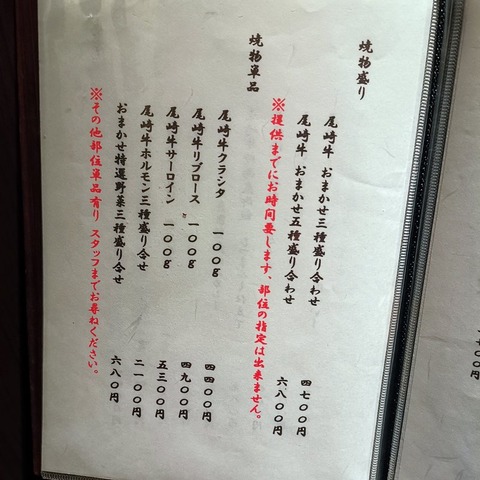 焼物盛り
尾崎牛 おまかせ三種盛り合わせ 四七〇〇円
尾崎牛 おまかせ五種盛り合わせ 六八〇〇円
※提供までにお時間要します、部位の指定は出来ません。
焼物単品
尾崎牛クラシタ 一〇〇g 四四〇〇円
尾崎牛リブロース 一〇〇g 四九〇〇円
尾崎牛サーロイン 一〇〇g 五三〇〇円
尾崎牛ホルモン三種盛り合せ 二一〇〇円
おまかせ特選野菜三種盛り合せ 六八〇円
※その他部位単品有り スタッフまでお尋ねください。